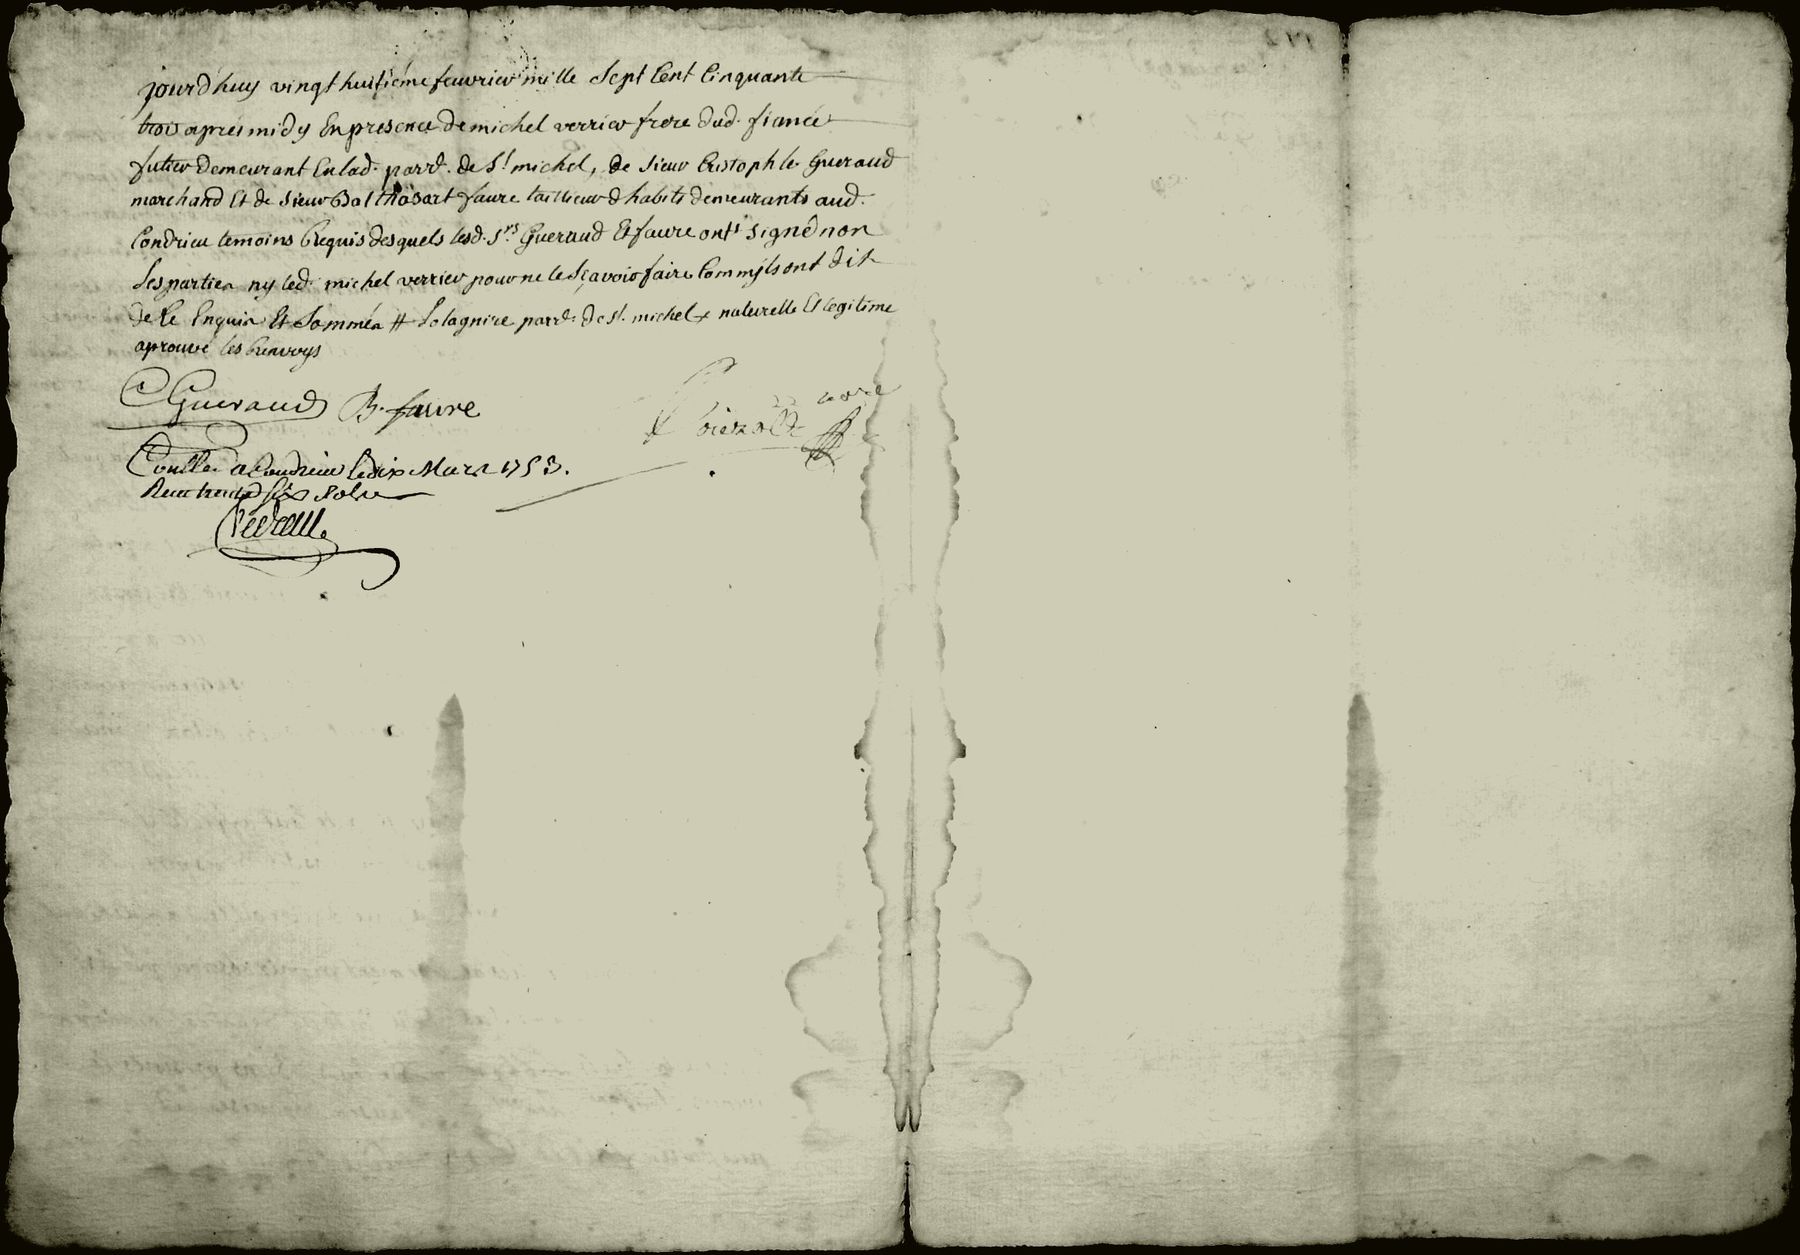 jourd'huy vingt huitiéme feuvrier mille Sept Cent Cinquante
trois aprés midy En presence de michel verrier frere dud. fiancé
futur demeurant En lad. parr^e. de S^t michel, de sieur Cristophle Gueraud
marchand Et de sieur Balthasart faure tailleur d habits demeurants aud.
Condrieu temoins Requis desquels lesd. S^rs Gueraud Et faure ont signé non
les parties ny led. michel verrier pour ne le sçavoir faire Comm jls ont dit
de Ce Enquis Et Sommés # parr^e. de S^t. michel x naturelle Et legitime
aprouvé les Renvoys
C Gueraud B. faure
nore
Con^lle a Condrieu le dix Mars 1753.
Reçu six sols